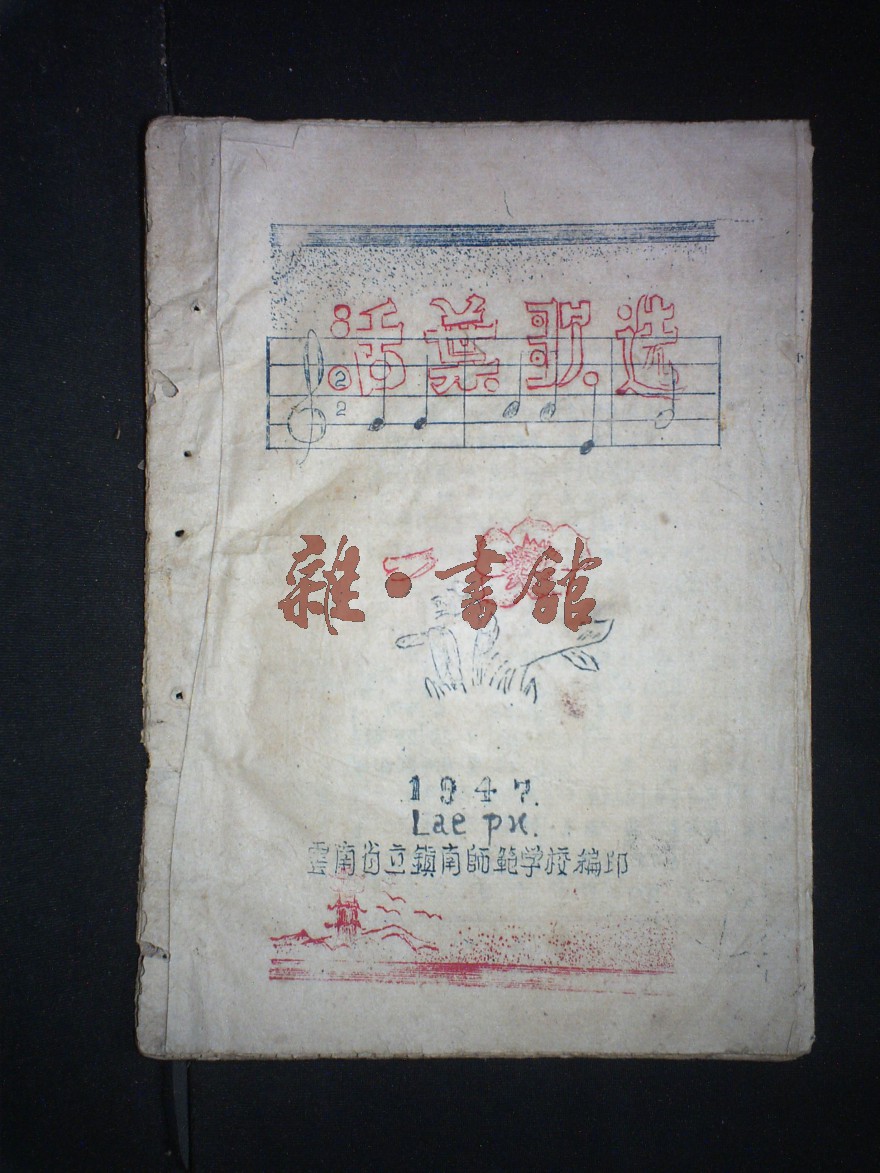 活葉歌选
2
2
雜·書館
1947.
Lae px.
雲南省立鎮南師範学校編印